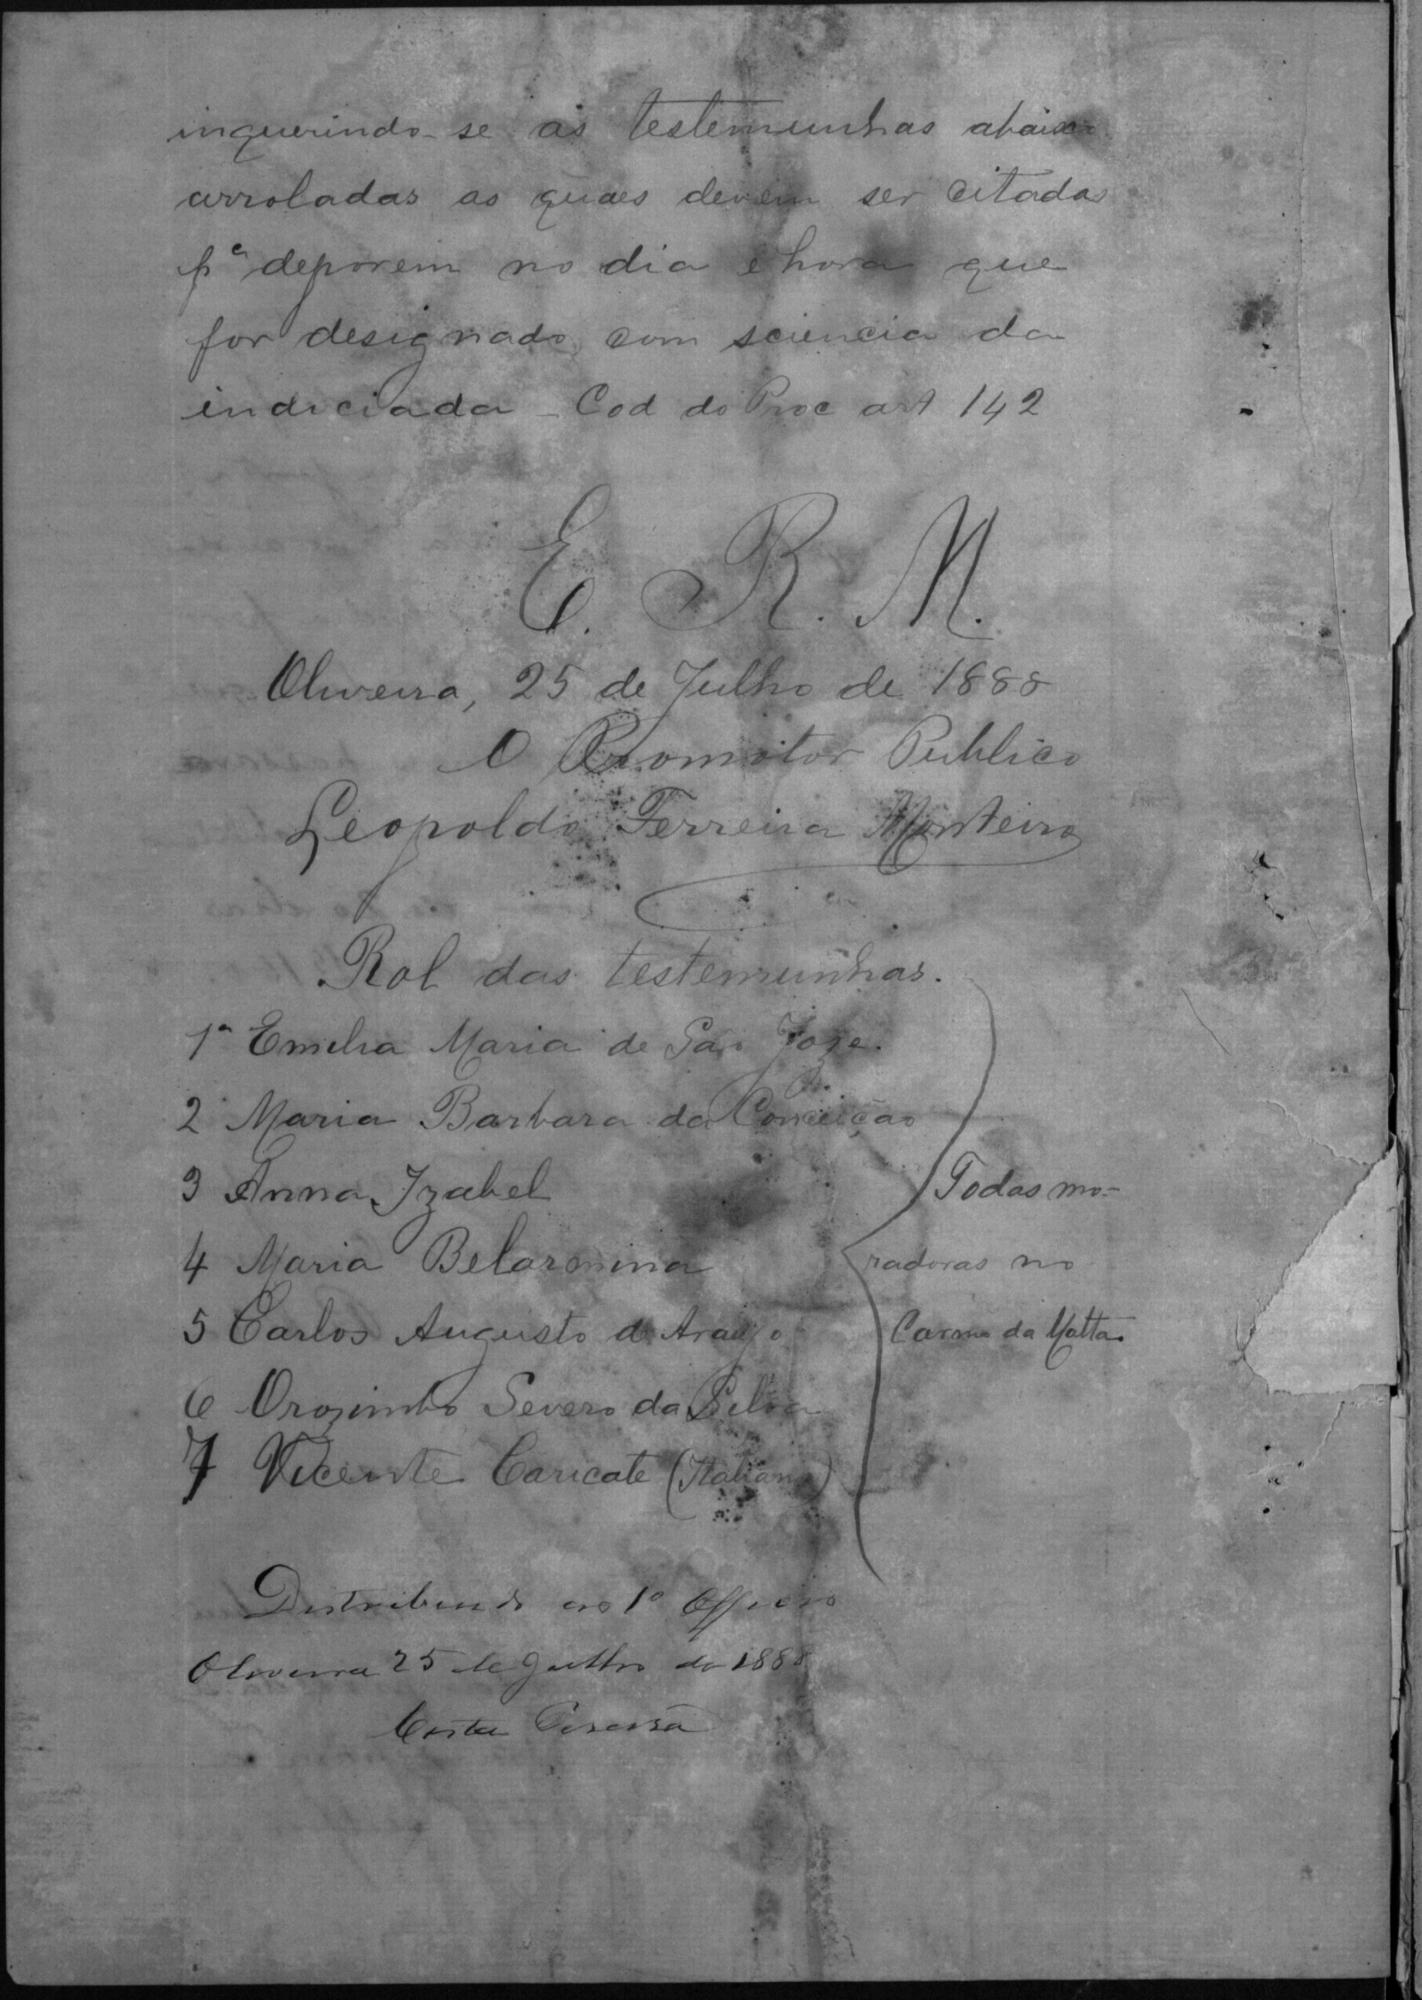 inquerindo-se as testemunhas abaixo
arroladas as quaes devem ser citadas
pª deporem no dia e hora que
for designado, com sciencia da
indiciada - Cod do Proc art 142
E. R. M.
Oliveira, 25 de Julho de 1888
O Promotor Publico
Leopoldo Ferreira Monteiro
Rol das testemunhas.
1ª Emilia Maria de São Joze.
2 Maria Barbara da Conceição
3 Anna Izabel
4 Maria Belarmina
5 Carlos Augusto de Araujo
6 Orozimbo Severo da Silva
7 Vicente Caricate (Italiano)
Todas mo-
radoras no
Carmo da Matta.
Distribuido ao 1º Officio
Oliveira 25 de Julho de 1888
Costa Pereira